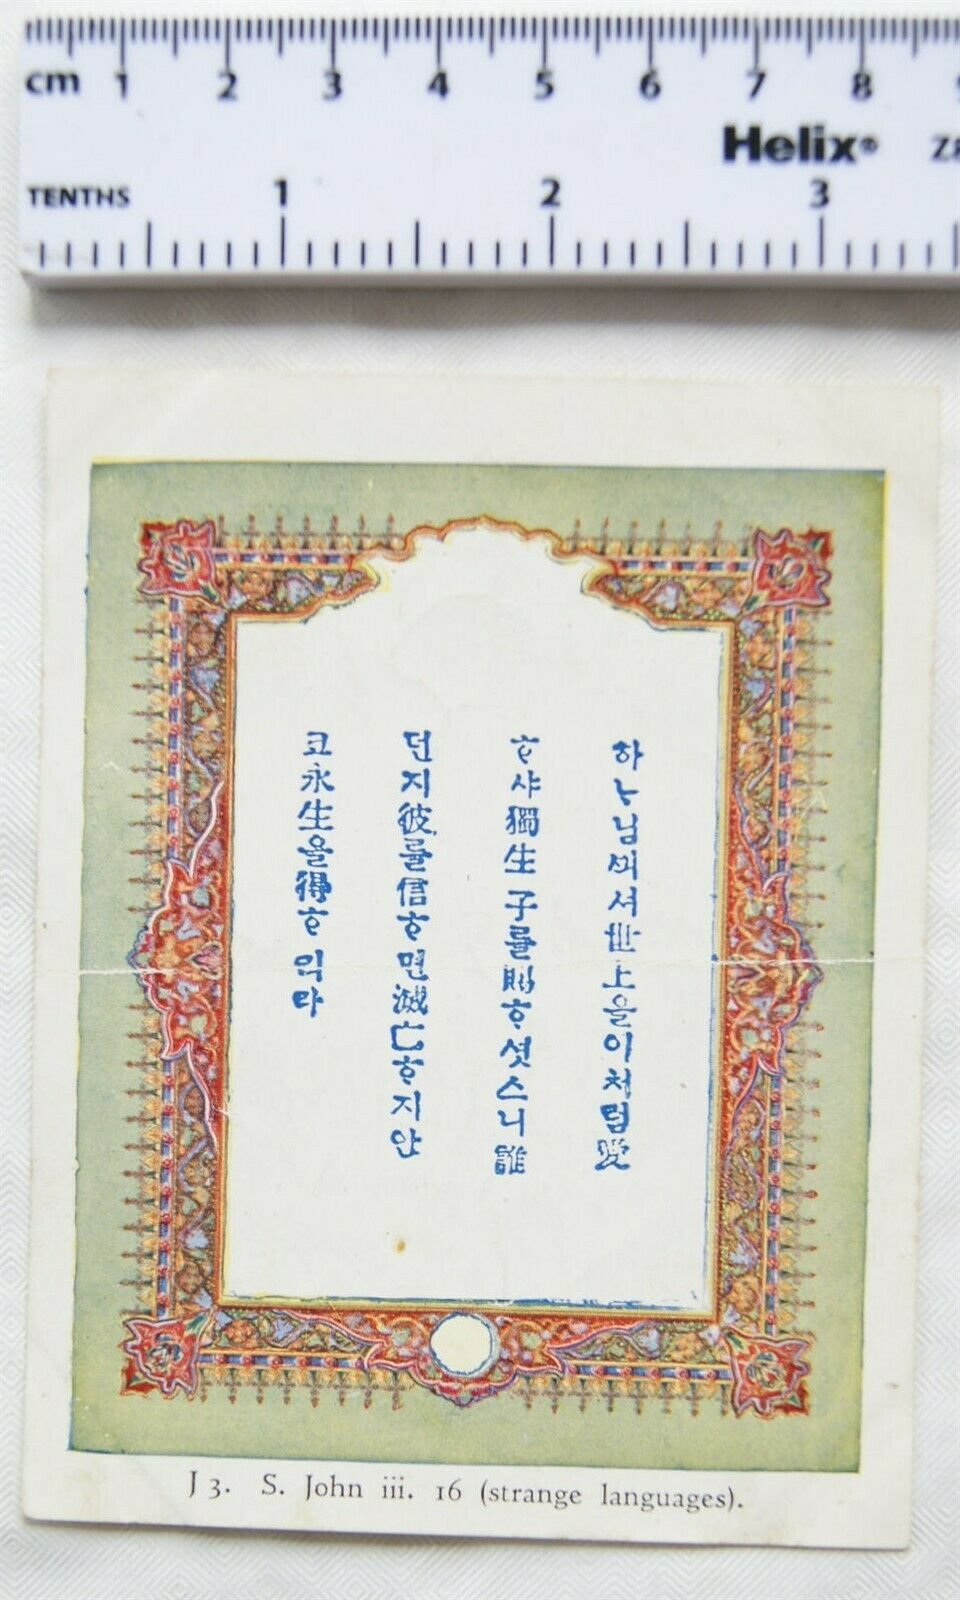 cm 1 2 3 4 5 6 7 8
Helix®
TENTHS 1 2 3
하ᄂᆞ님ᄭᅴ셔世上을이처럼愛
ᄒᆞ샤獨生子를賜ᄒᆞ셧스니誰
던지彼를信ᄒᆞ면滅亡ᄒᆞ지안
코永生을得ᄒᆞ익라
J 3. S. John iii. 16 (strange languages).